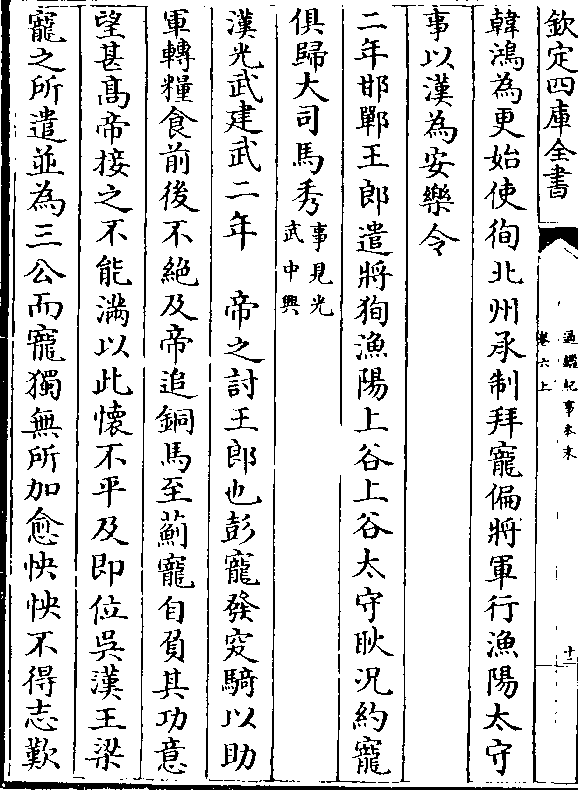 欽定四庫全書
通鑑紀事本末
卷六上
十一
韓鴻為更始使徇北州承制拜寵偏將軍行漁陽太守
事以漢為安樂令
二年邯鄲王郎遣將狥漁陽上谷上谷太守耿況約寵
俱歸大司馬秀事見光
武中興
漢光武建武二年　帝之討王郎也彭寵發突騎以助
軍轉糧食前後不絕及帝追銅馬至薊寵自負其功意
望甚髙帝接之不能滿以此懐不平及即位吳漢王梁
寵之所遣並為三公而寵獨無所加愈怏怏不得志歎